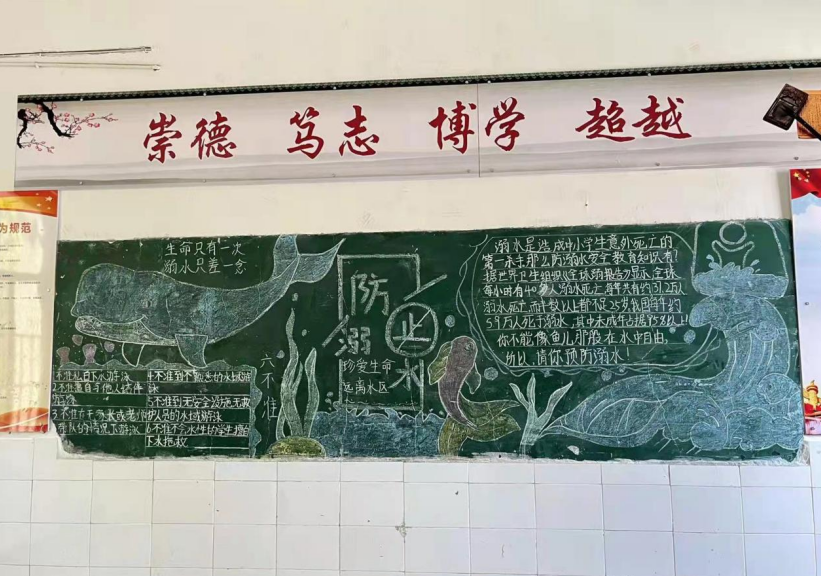 崇德 笃志 博学 超越
为规范
生命只有一次
溺水只差一念
防溺止水
珍爱生命
远离水区
六不准
1.不准私自下水游泳
2.不准擅自与他人结伴
游泳
3.不准在无家长或老师
带队的情况下游泳
4.不准到不熟悉的水域游
泳
5.不准到无安全设施无救
护人员的水域游泳
6.不准不会水性的学生擅自
下水抢救
溺水是造成中小学生意外死亡的
第一杀手那么防溺水安全教育知识有?
据世界卫生组织《全球溺水报告》显示,全球
每小时有40多人溺水死亡,每年共有约37.2万人
溺水死亡,而半数以上都不足25岁我国每年约
5.9万人死于溺水,其中未成年占据95%以上!
你不能像鱼儿那般在水中自由,
所以,请你预防溺水!